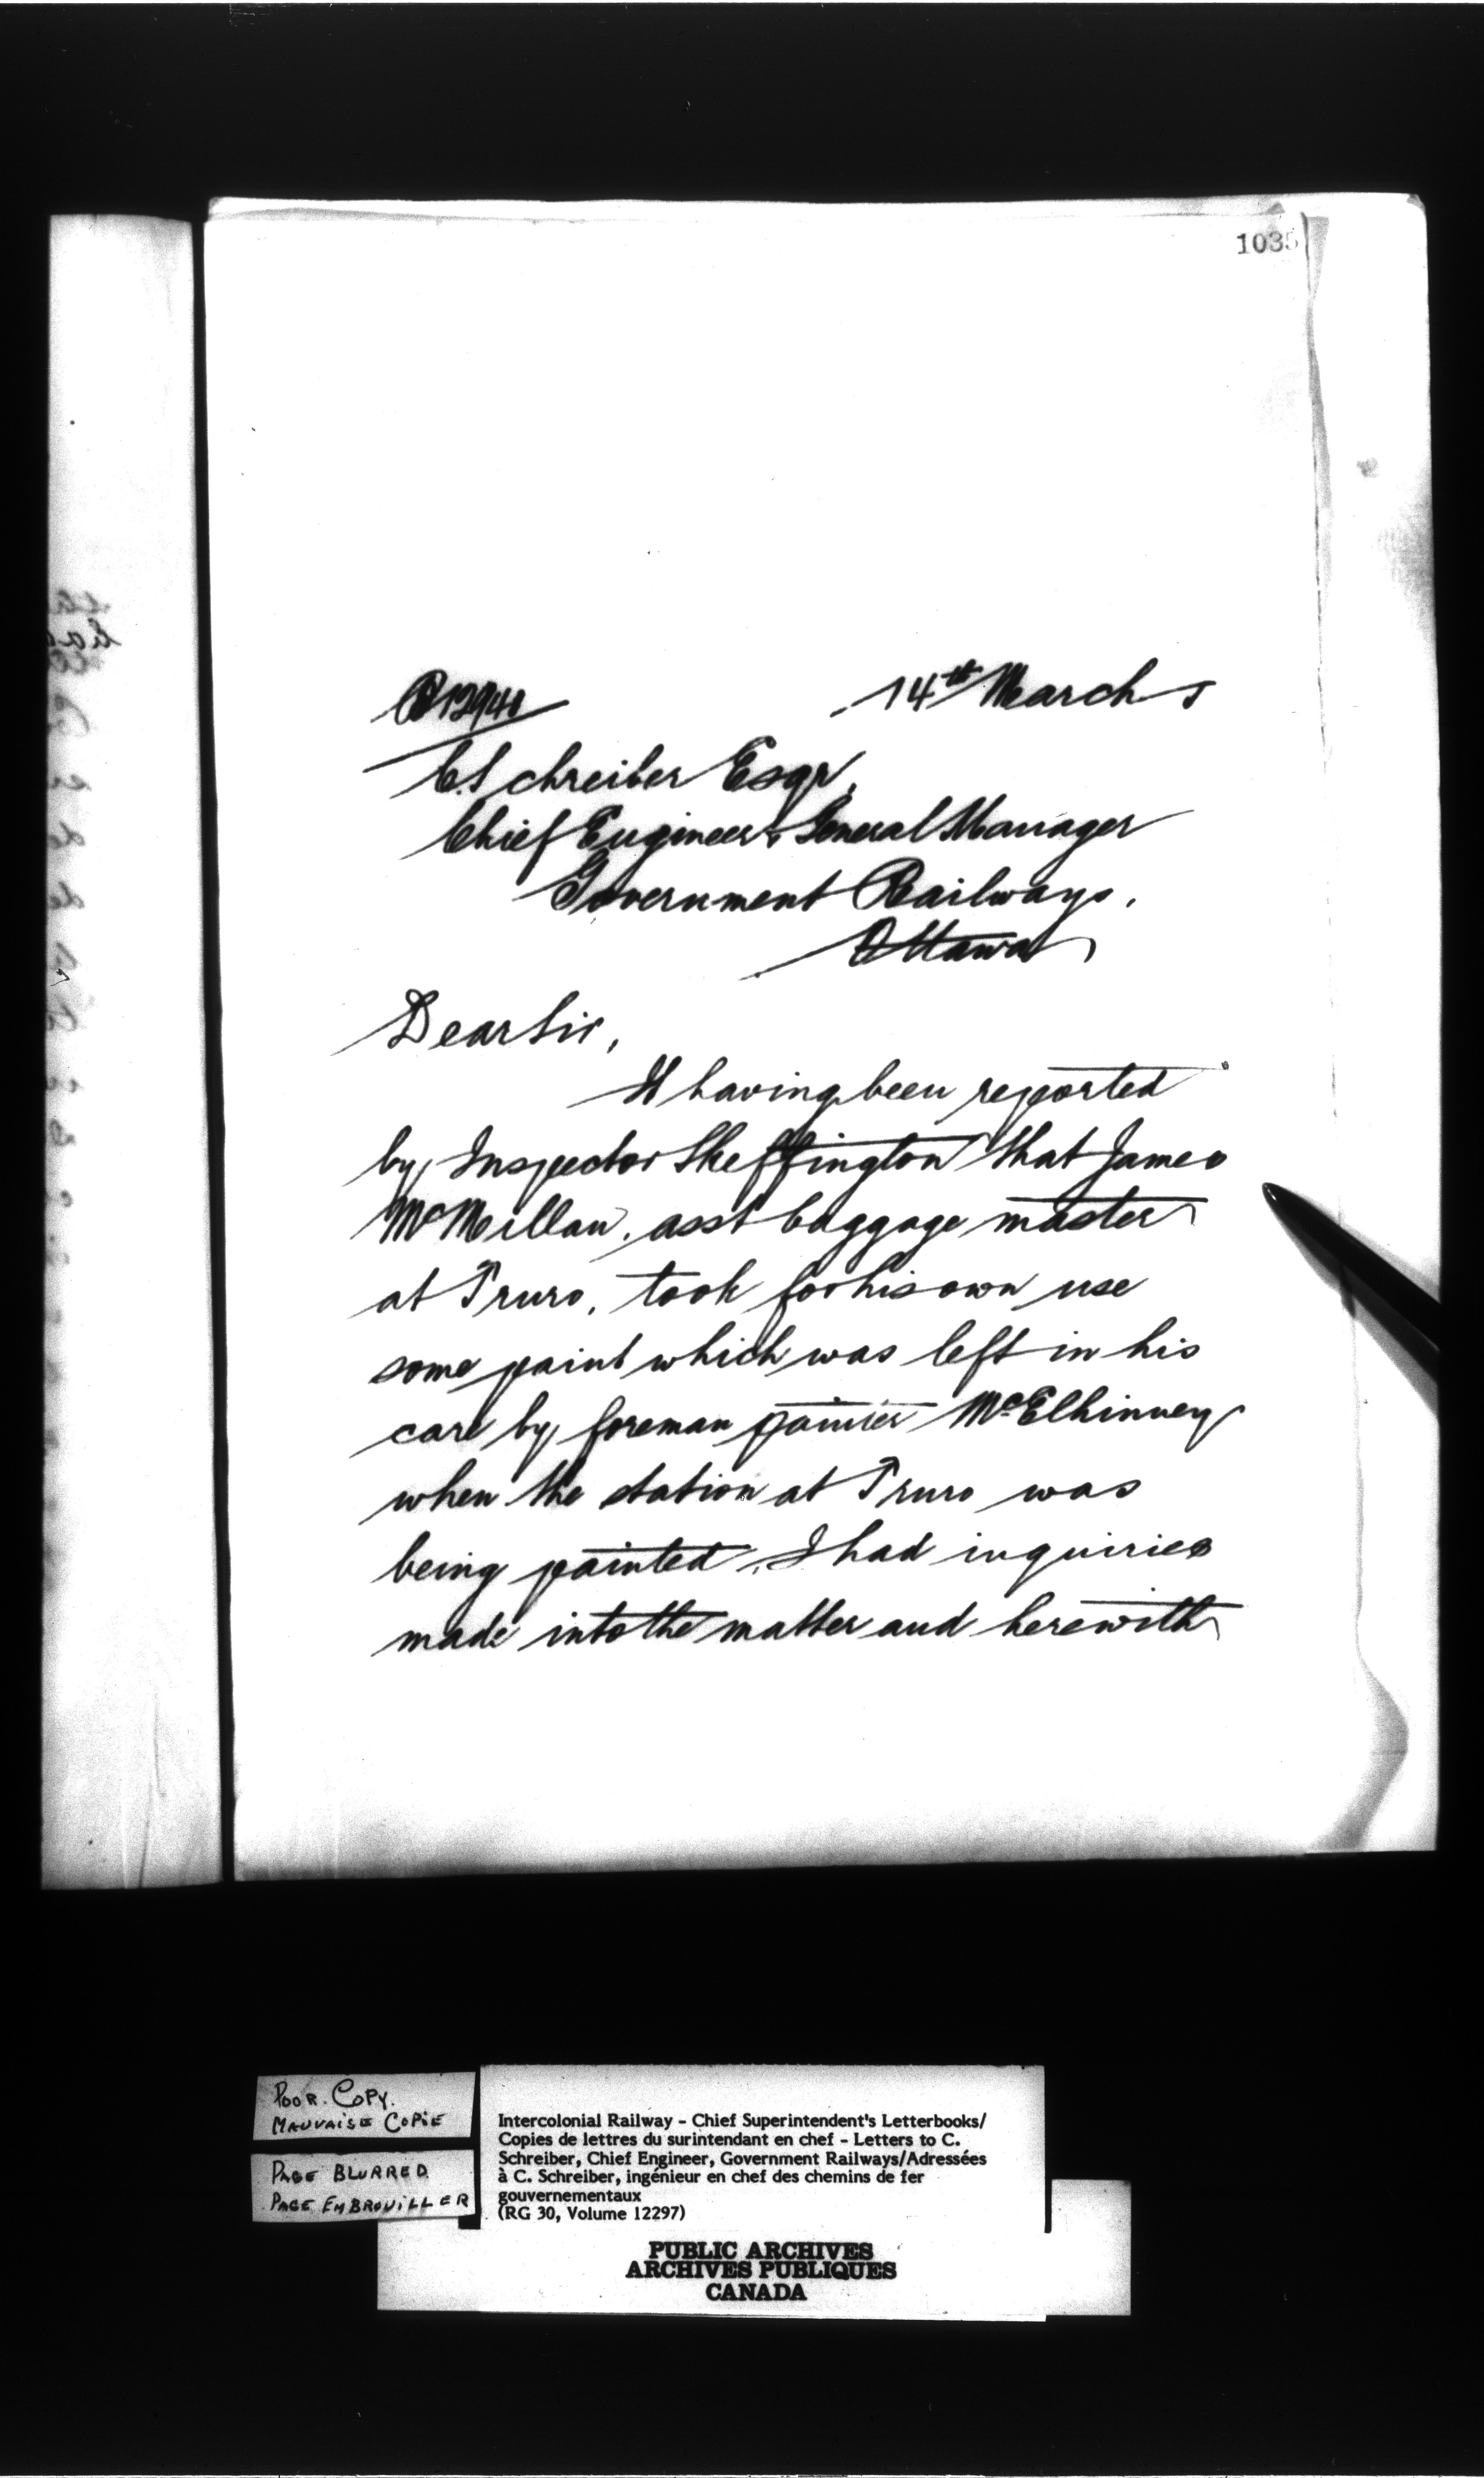 1035
14th March 5
C. Schreiber Esqr,
Chief Engineer & General Manager
Government Railways,
Ottawa
Dear Sir,
It having been reported
by Inspector Skeffington that James
McMillan, asst baggage master
at Truro, took for his own use
some paint which was left in his
care by foreman painter McElhinney
when the station at Truro was
being painted, I had inquiries
made into the matter and herewith
POOR COPY.
MAUVAISE COPIE
PAGE BLURRED
PAGE EMBROUILLER
Intercolonial Railway - Chief Superintendent's Letterbooks/
Copies de lettres du surintendant en chef - Letters to C.
Schreiber, Chief Engineer, Government Railways/Adressées
à C. Schreiber, ingénieur en chef des chemins de fer
gouvernementaux
(RG 30, Volume 12297)
PUBLIC ARCHIVES
ARCHIVES PUBLIQUES
CANADA